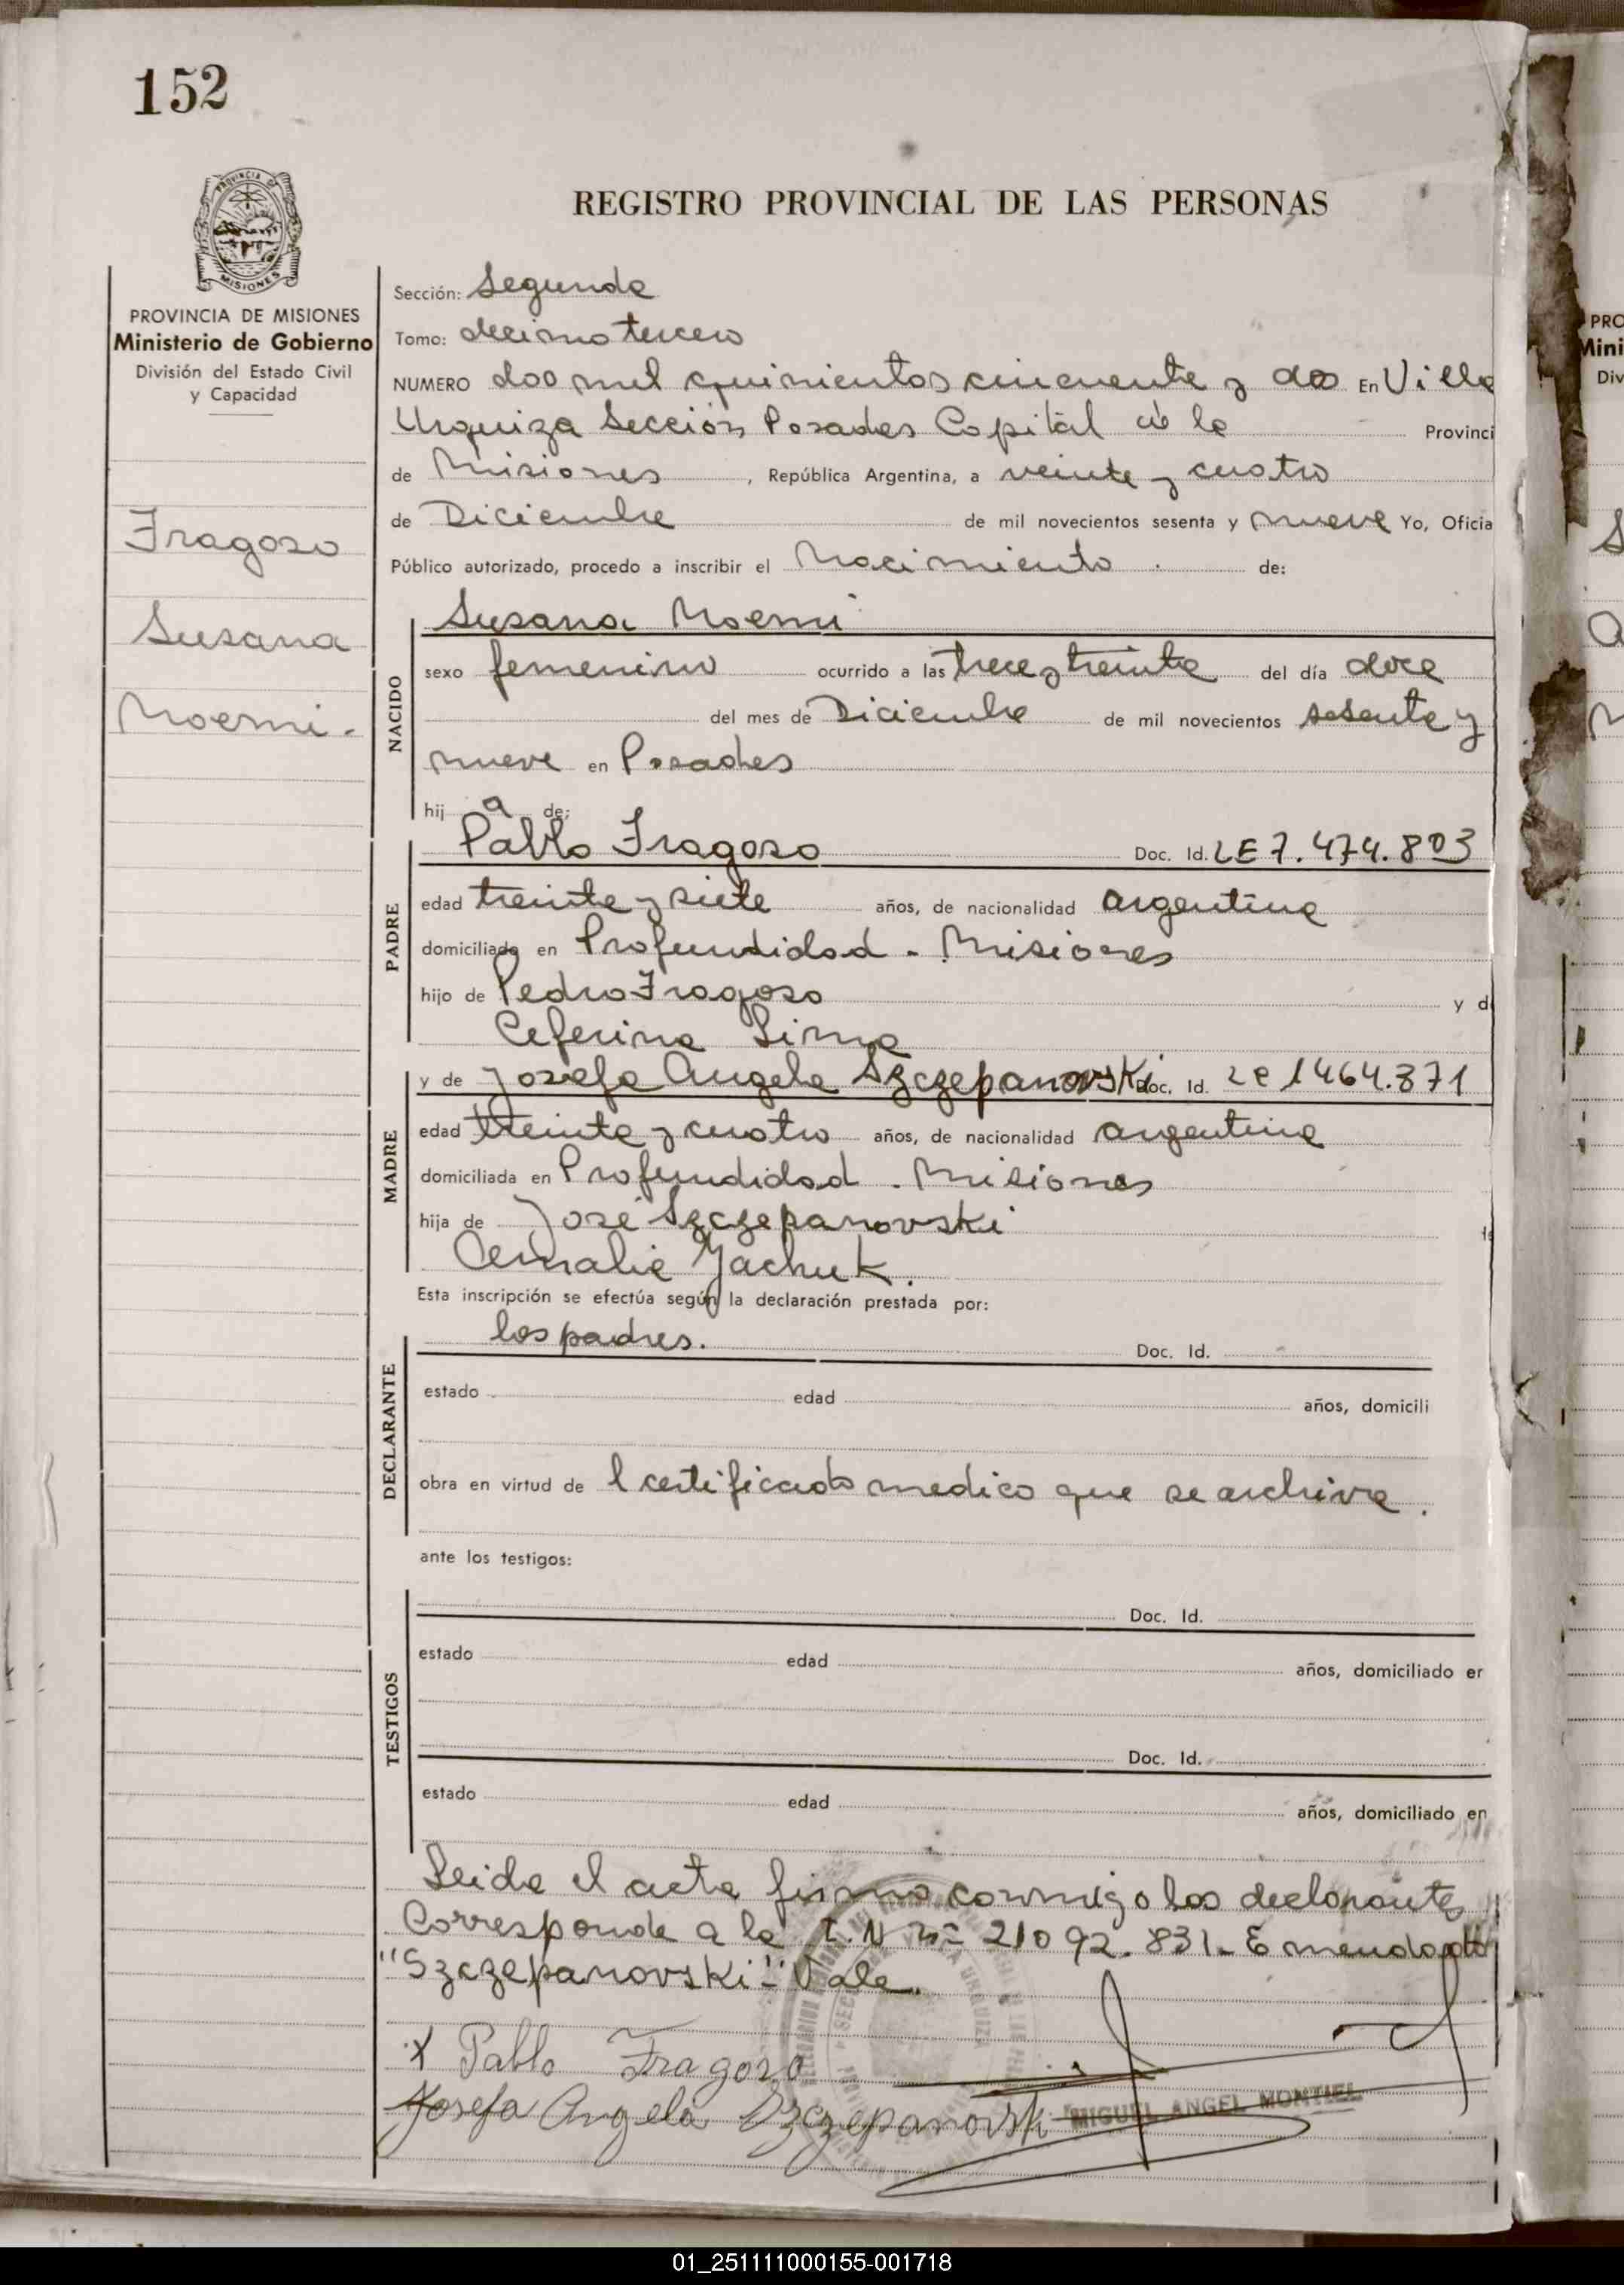 152
REGISTRO PROVINCIAL DE LAS PERSONAS
PROVINCIA DE MISIONES
Ministerio de Gobierno
División del Estado Civil
y Capacidad
Fragoso
Susana
Noemi.
Sección: Segunda
Tomo: decimo tercero
NUMERO dos mil quinientos cincuenta y dos En Villa
Urquiza Sección Posadas Capital de la Provinci
de Misiones, República Argentina, a veinte y cuatro
de Diciembre de mil novecientos sesenta y nueve Yo, Oficia
Público autorizado, procedo a inscribir el Nacimiento de:
NACIDO
Susana Noemi
sexo femenino ocurrido a las trece y treinta del día doce
del mes de Diciembre de mil novecientos sesenta y
nueve en Posadas
hij a de:
PADRE
Pablo Fragoso Doc. Id. LE 7.474.803
edad treinta y siete años, de nacionalidad argentina
domiciliado en Profundidad - Misiones
hijo de Pedro Fragoso y d
Ceferina Lima
MADRE
y de Josefa Angela Szczepanovski Doc. Id. LC 1464.371
edad treinta y cuatro años, de nacionalidad argentina
domiciliada en Profundidad - Misiones
hija de José Szczepanovski
Amalia Jachuk.
Esta inscripción se efectúa según la declaración prestada por:
DECLARANTE
los padres. Doc. Id.
estado edad años, domicili
obra en virtud de l certificado medico que se archiva.
ante los testigos:
TESTIGOS
Doc. Id.
estado edad años, domiciliado er
Doc. Id.
estado edad años, domiciliado en
Leida el acta firman conmigo los declarantes
Corresponde a la I.N nº 21092.831- Emendado
"Szczepanovski-" Vale.
x Pablo Fragoso
Josefa Angela Szczepanovski
MIGUEL ANGEL MONTIEL
01_251111000155-001718